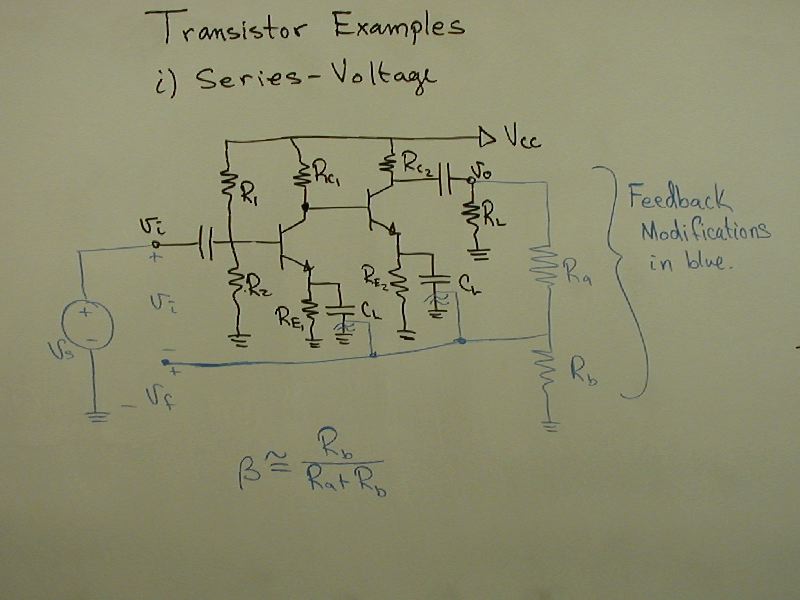 Transistor Examples
i) Series-Voltage
Vcc
R1
RC1
RC2
vo
RL
vi
R2
RE1
CL
RE2
CL
Feedback
Modifications
in blue.
Ra
Rb
+
vi
−
+
−
Vs
+
Vf
−
β ≅ Rb
Ra + Rb